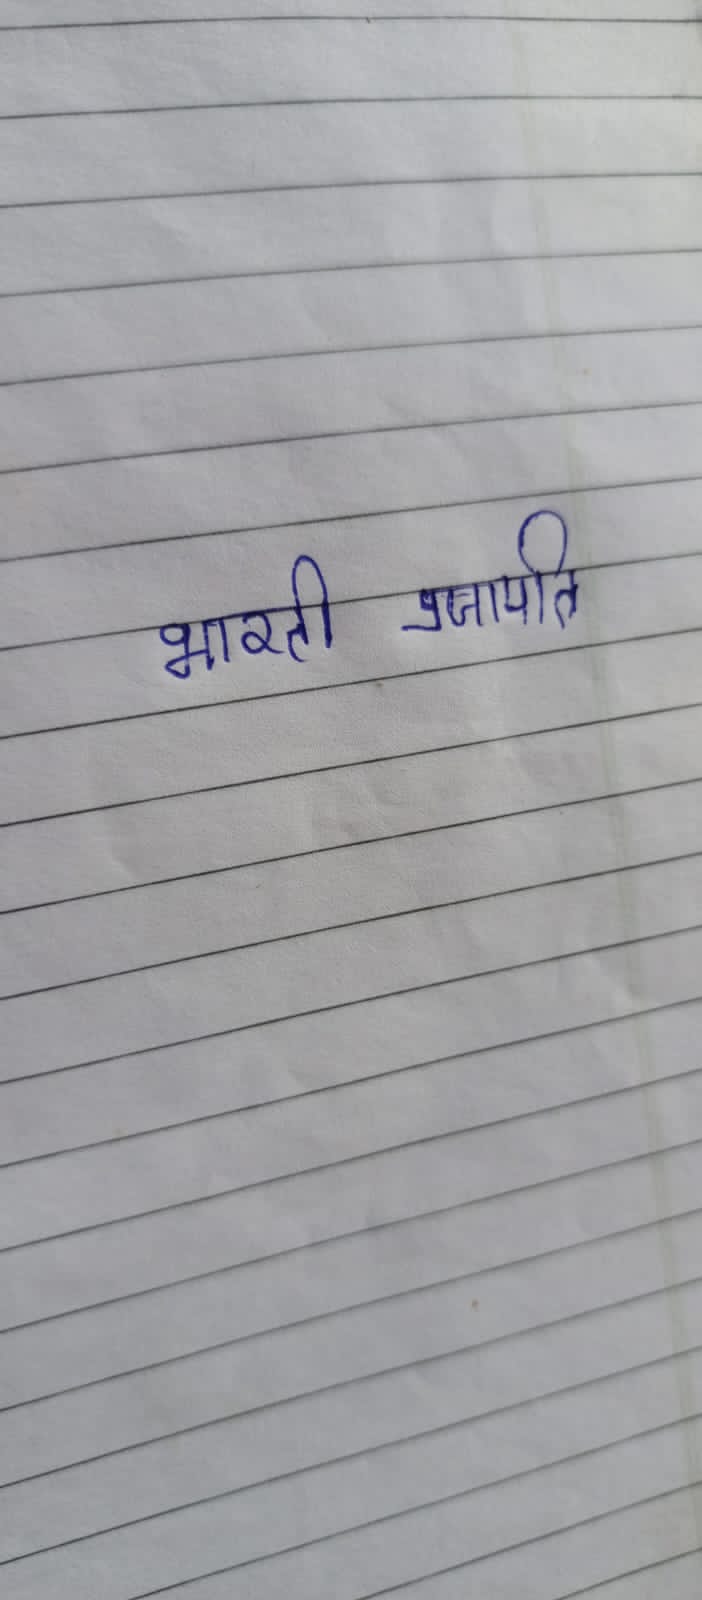 भारती प्रजापति